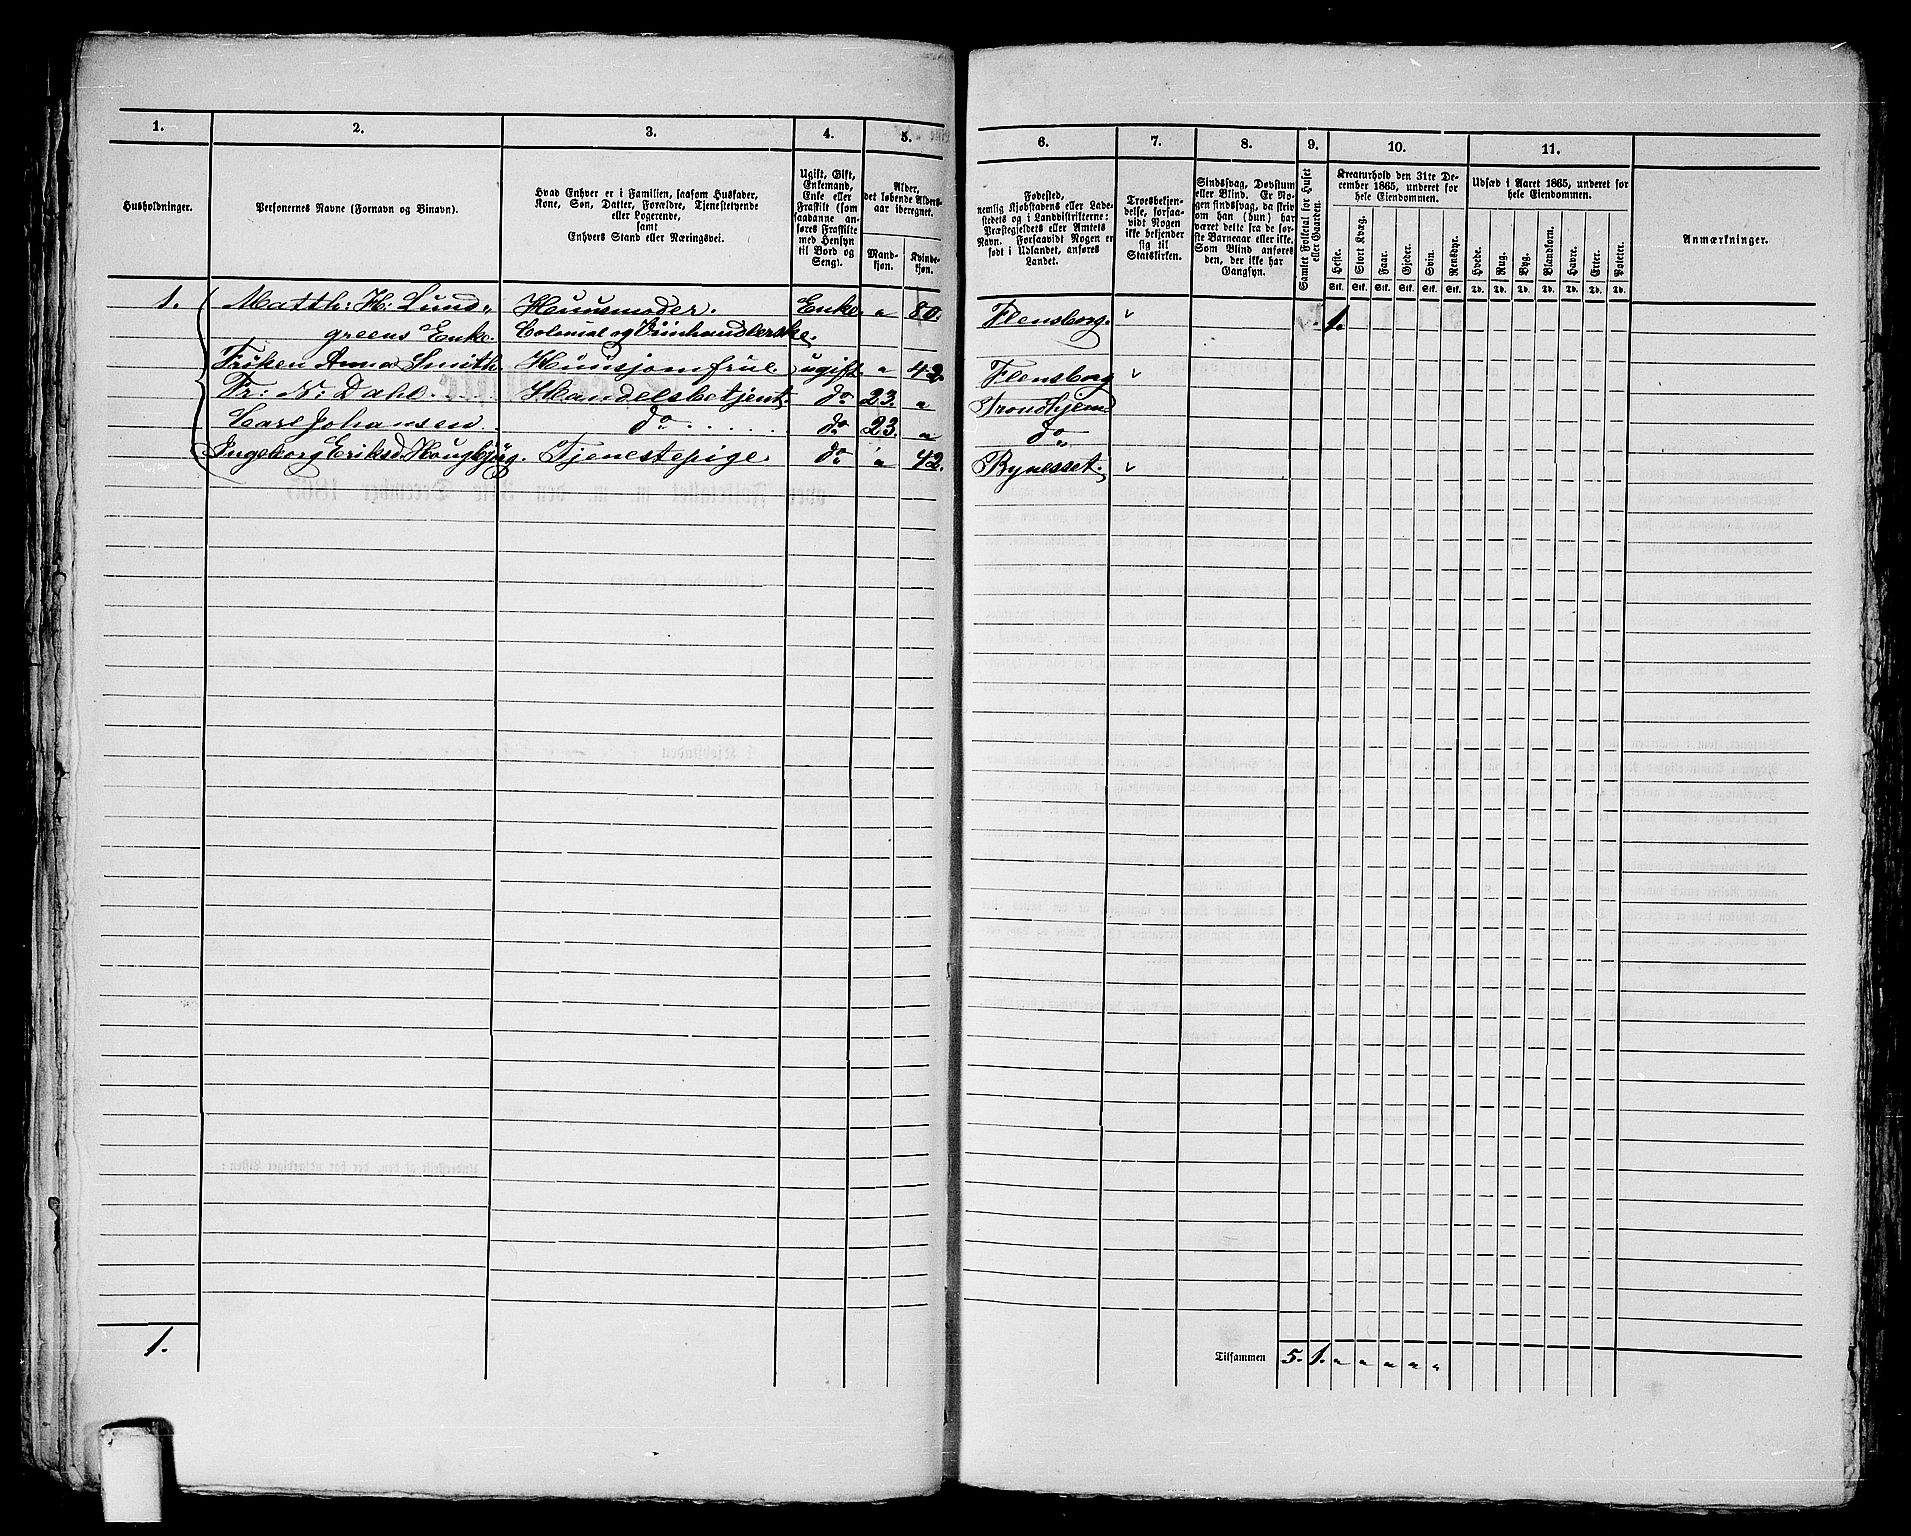 1. 2. 3. 4. 5.
Husholdninger.
Personernes Navne (Fornavn og Binavn).
Hvad Enhver er i Familien, saasom Husfader,
Kone, Søn, Datter, Forældre, Tjenestetyende
eller Logerende,
samt
Enhvers Stand eller Næringsvei.
Ugift, Gift,
Enkemand,
Enke eller
Fraskilt (som
saadanne an-
føres Fraskilte
med Hensyn
til Bord og
Seng).
Alder,
det løbende Alders-
aar iberegnet.
Mand-
kjøn.
Kvinde-
kjøn.
1. Matth: H: Lund- Huusmoder. Enke. " 80.
greens Enke. Colonial og Viinhandlerske.
Frøken Anna Smith. Huusjomfrue ugift. " 42.
Fr: N: Dahl. Handelsbetjent. do 23. "
Carl Johansen do do 23. "
Ingeborg Eriksd. Tjenestepige. do " 42.
1.
6. 7. 8. 9. 10. 11.
Fødested,
nemlig Kjøbstadens eller Lade-
stedets og i Landdistrikterne:
Præstegjeldets eller Amtets
Navn. Forsaavidt Nogen er
født i Udlandet, anføres
Landet.
Troesbekjen-
delse, forsaa-
vidt Nogen
ikke bekjender
sig til
Statskirken.
Sindssvag, Døvstum
eller Blind. Er No-
gen sindssvag, da skriv
om han (hun) har
været dette fra de før-
ste Barneaar eller ikke.
Som Blind anføres
den, der ikke har
Gangsyn.
Samlet Folketal for Huset
eller Gaarden.
Kreaturhold den 31te De-
cember 1865, underet for
hele Eiendommen.
Heste. Stort Kvæg. Faar. Gjeder. Svin. Rensdyr.
Stk. Stk. Stk. Stk. Stk. Stk.
Udsæd i Aaret 1865, underet for
hele Eiendommen.
Hvede. Rug. Byg. Blandkorn. Havre. Erter. Poteter.
Td. Td. Td. Td. Td. Td. Td.
Anmærkninger.
Flensborg. 1.
Flensborg
Trondhjem
do
Bynesset.
Tilsammen 5. 1. " " " " "